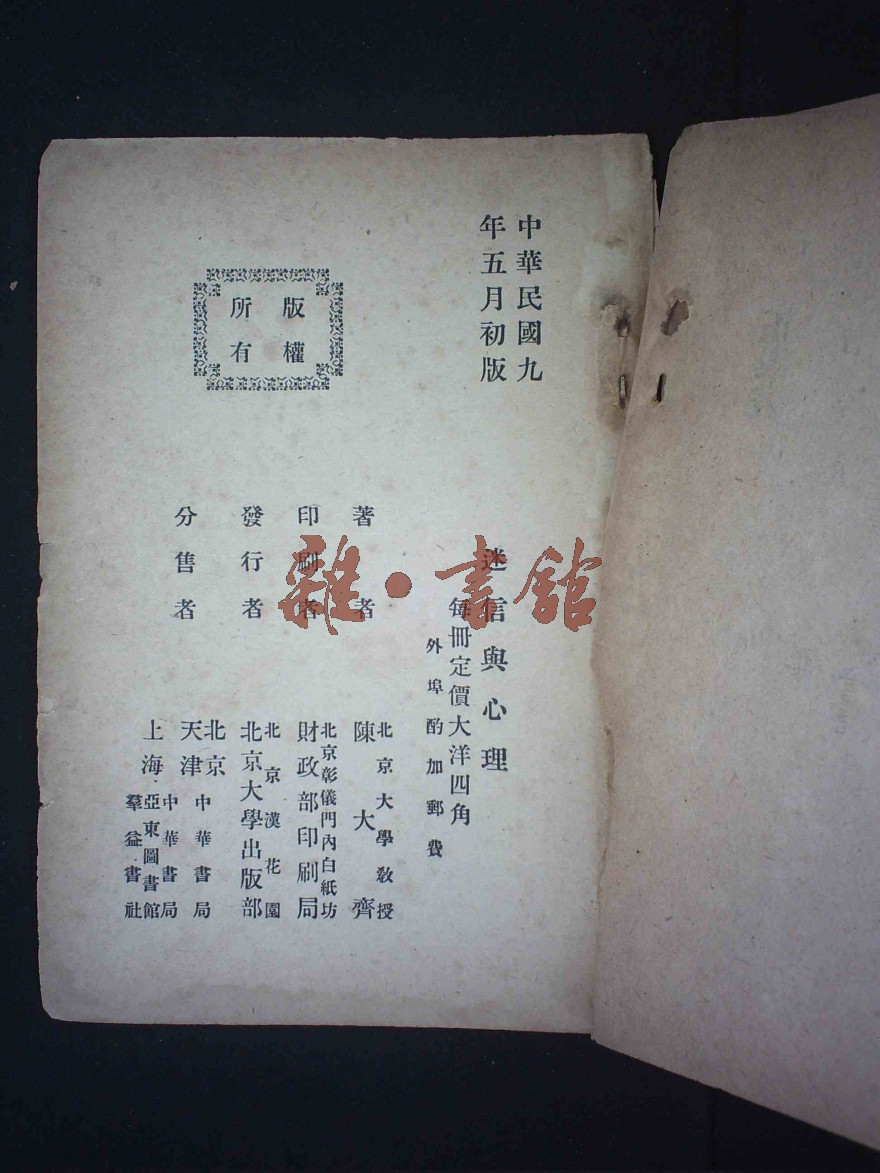 中華民國九
年五月初版
版權
所有
迷信與心理
每冊定價大洋四角
外埠酌加郵費
著者
北京大學教授
陳大齊
印刷者
北京彰儀門內白紙坊
財政部印刷局
發行者
北京漢花園
北京大學出版部
分售者
北京 中華書局
天津 中華書局
上海 亞東圖書館
羣益書社
雜·書館